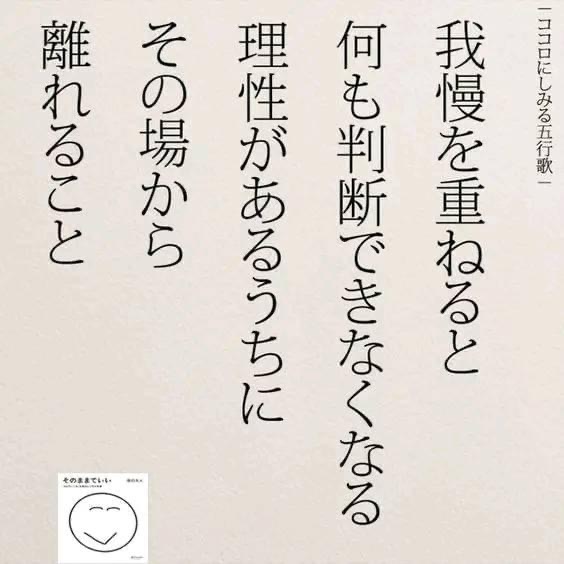 ーココロにしみる五行歌ー
我慢を重ねると
何も判断できなくなる
理性があるうちに
その場から
離れること
そのままでいい